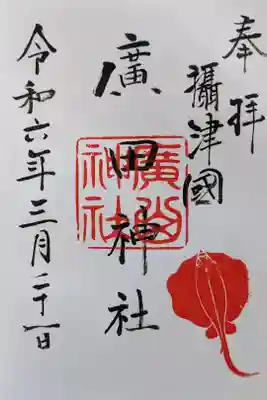 奉拝
攝津國
廣田神社
令和六年三月二十一日
廣田
神社